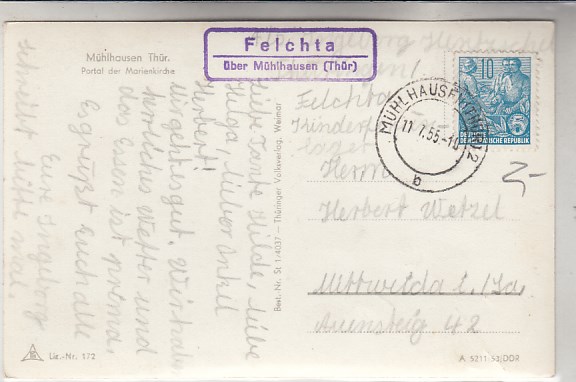 Mühlhausen Thür.
Portal der Marienkirche
Felchta
über Mühlhausen (Thür)
10
DEUTSCHE DEMOKRATISCHE REPUBLIK
MÜHLHAUSEN
11.7.55.-10
b
Liebe Tante Hilde, liebe
Helga, lieber Onkel
Herbert!
Mir geht es gut. Wir haben
herrliches Wetter und
das Essen ist prima.
Es grüßt Euch alle
Eure Ingeborg
schreibt bitte mal.
Best. Nr. St 1/4037 — Thüringer Volksverlag, Weimar
Ingeborg
Felchta
Kinderferien
lager
Herrn
Herbert Wetzel
Mittweida i. /Sa.
Auensteig 42
Liz.-Nr. 172
A 5211-53/DDR